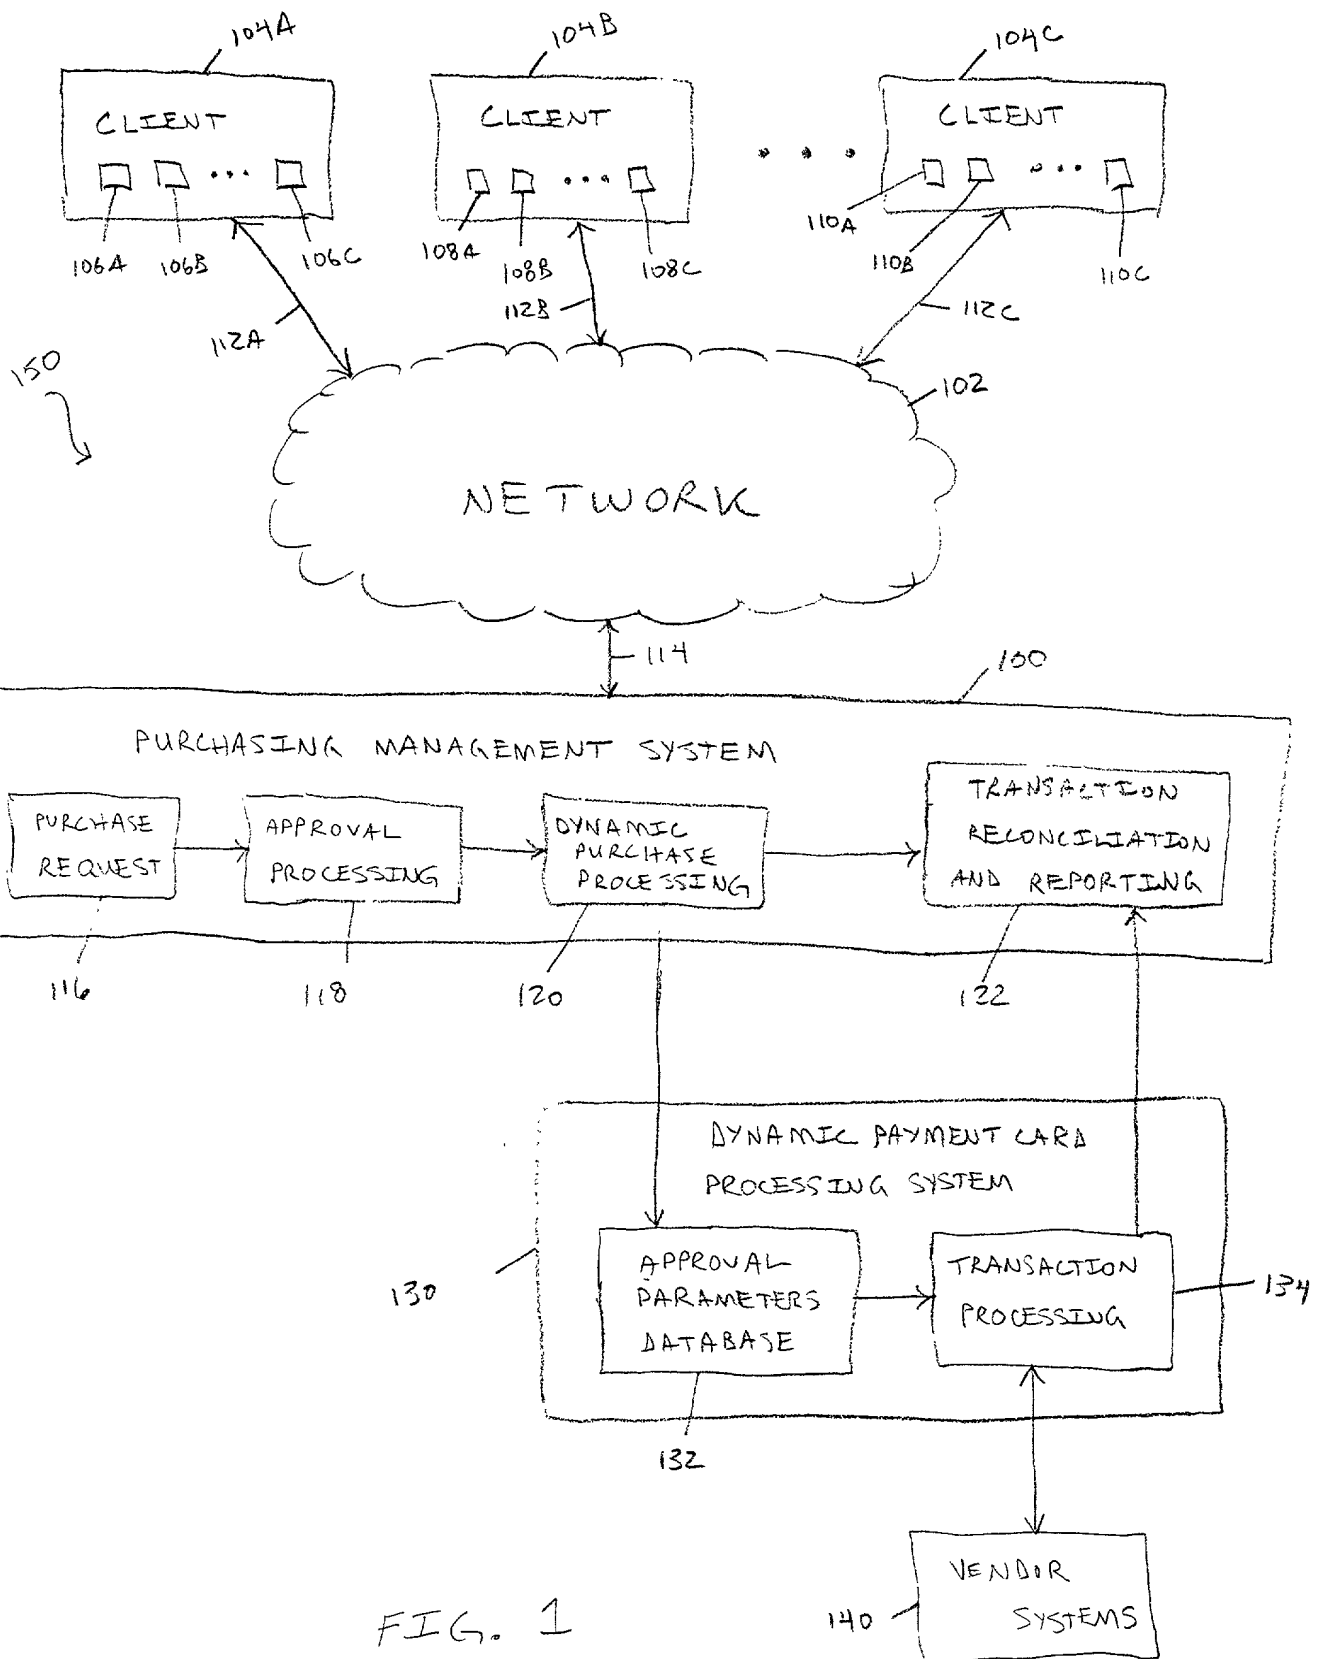 104A
104B
104C
CLIENT
CLIENT
CLIENT
106A
106B
106C
108A
108B
108C
110A
110B
110C
112A
112B
112C
150
102
NETWORK
114
100
PURCHASING MANAGEMENT SYSTEM
PURCHASE
REQUEST
APPROVAL
PROCESSING
DYNAMIC
PURCHASE
PROCESSING
TRANSACTION
RECONCILIATION
AND REPORTING
116
118
120
122
DYNAMIC PAYMENT CARD
PROCESSING SYSTEM
130
APPROVAL
PARAMETERS
DATABASE
TRANSACTION
PROCESSING
134
132
VENDOR
SYSTEMS
140
FIG. 1